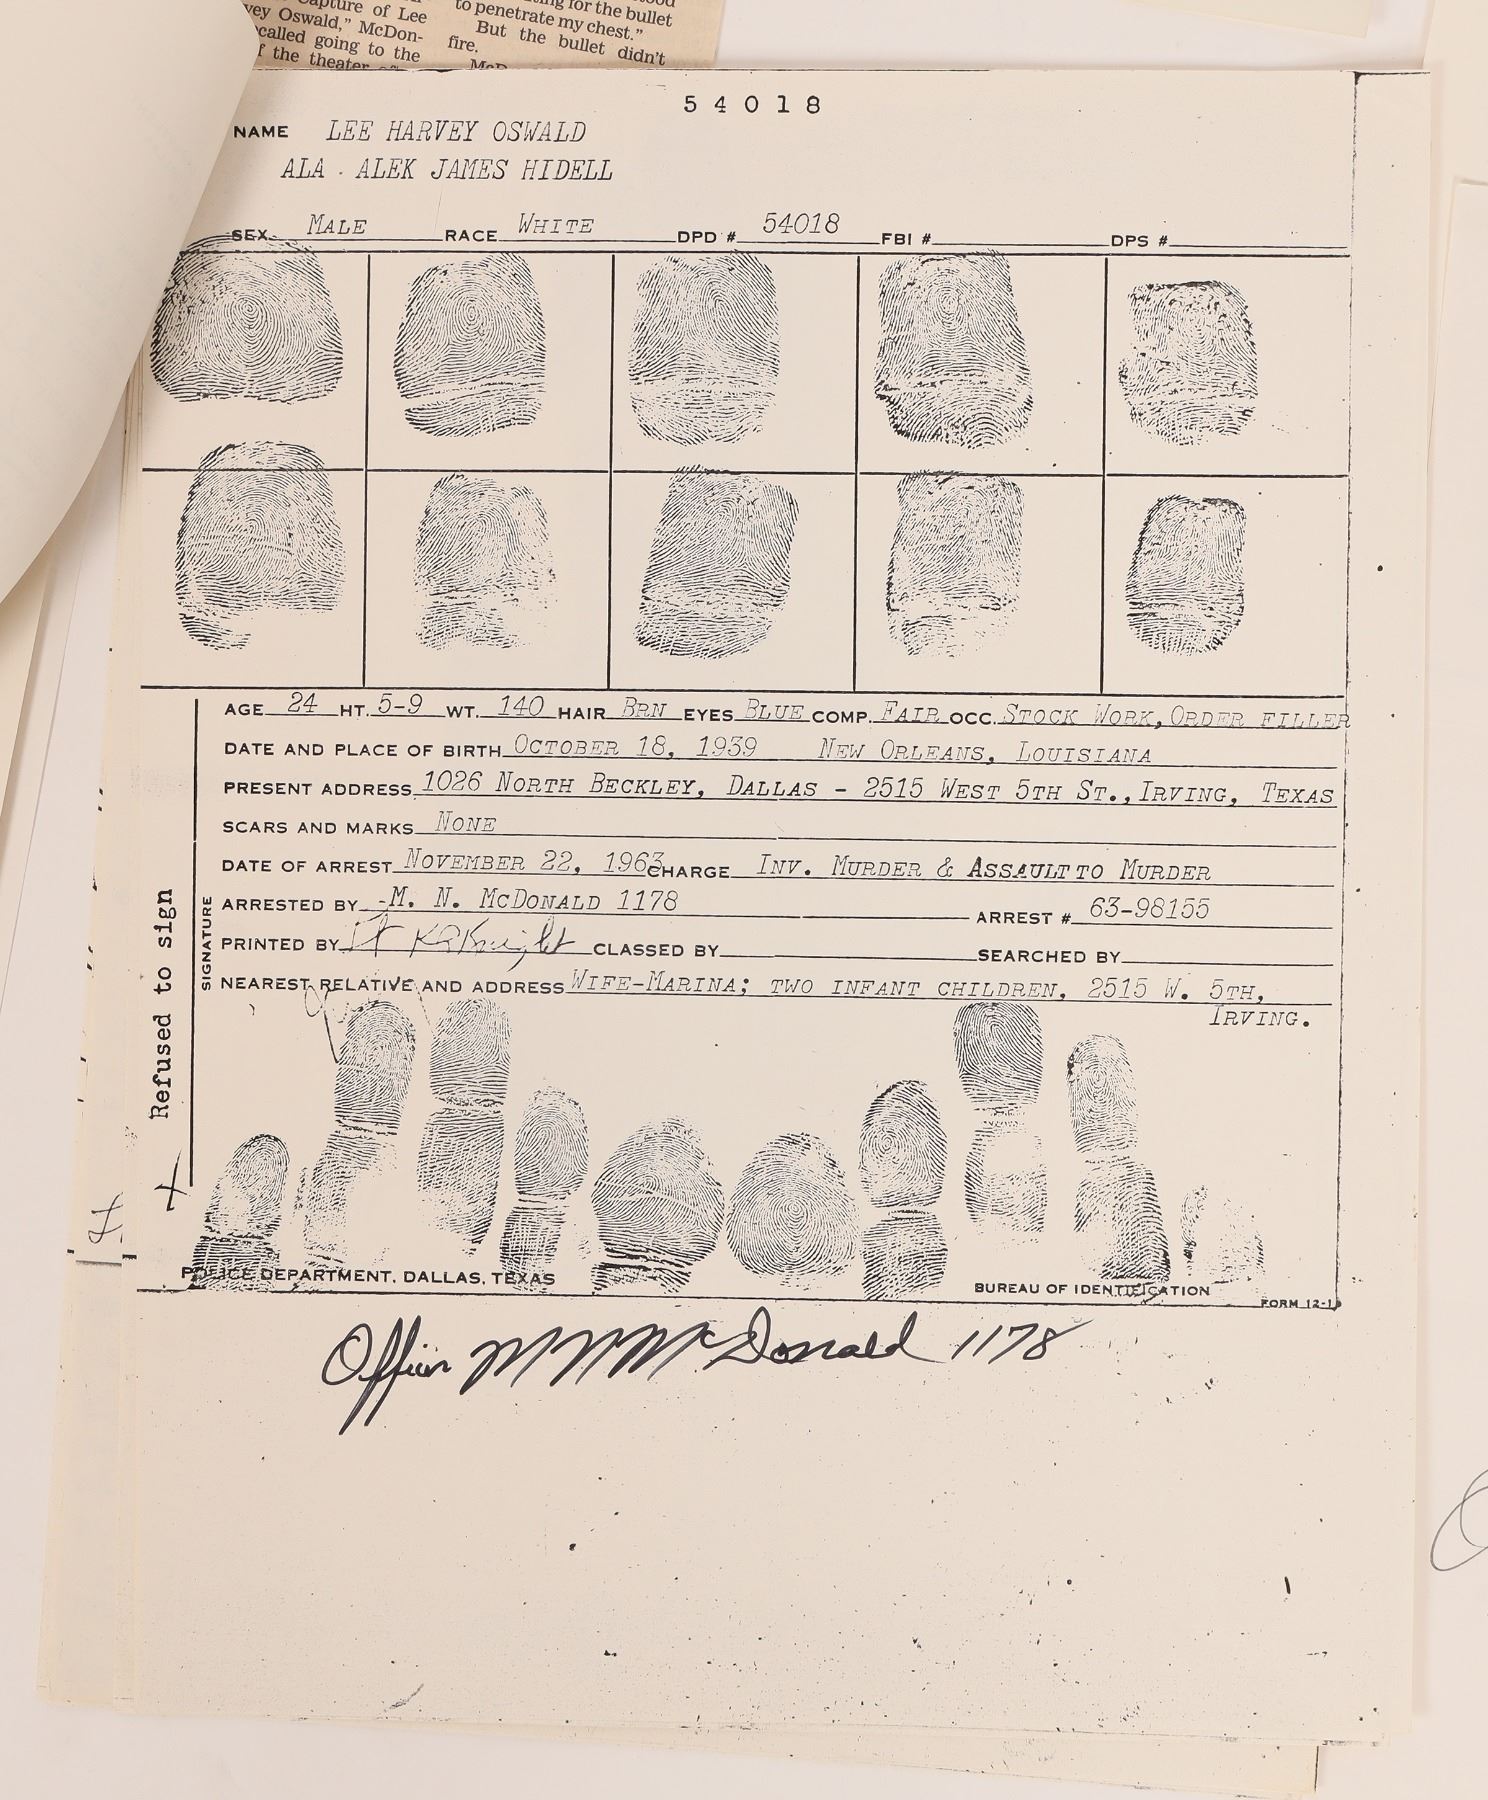 apture of Lee
vey Oswald," McDon-
called going to the
f the theater
ing for the bullet
to penetrate my chest."
But the bullet didn't
fire.
54018
NAME LEE HARVEY OSWALD
ALA . ALEK JAMES HIDELL
SEX MALE RACE WHITE DPD # 54018 FBI # DPS #
AGE 24 HT. 5-9 WT. 140 HAIR BRN EYES BLUE COMP. FAIR OCC. STOCK WORK, ORDER FILLER
DATE AND PLACE OF BIRTH OCTOBER 18, 1939 NEW ORLEANS, LOUISIANA
PRESENT ADDRESS 1026 NORTH BECKLEY, DALLAS - 2515 WEST 5TH ST., IRVING, TEXAS
SCARS AND MARKS NONE
DATE OF ARREST NOVEMBER 22, 1963 CHARGE INV. MURDER & ASSAULT TO MURDER
ARRESTED BY -M. N. MCDONALD 1178 ARREST # 63-98155
PRINTED BY Lt KPKnight CLASSED BY SEARCHED BY
NEAREST RELATIVE AND ADDRESS WIFE-MARINA; TWO INFANT CHILDREN, 2515 W. 5TH,
IRVING.
SIGNATURE
X Refused to sign
POLICE DEPARTMENT, DALLAS, TEXAS BUREAU OF IDENTIFICATION
FORM 12-1
Officer M N McDonald 1178